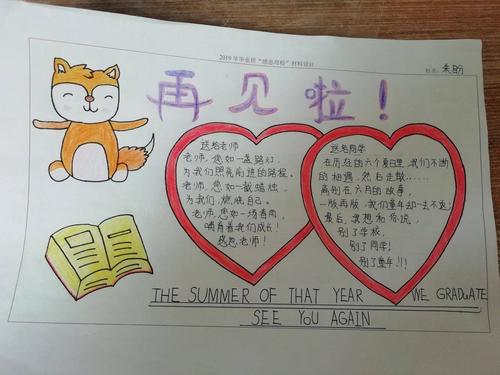 2019年毕业班“感恩母校”材料设计
姓名：朱盼
再见啦！
送给老师
老师，您如一盏路灯，
为我们照亮前进的路程。
老师，您如一截蜡烛，
为我们，燃烧自己。
老师，您如一场春雨，
哺育着我们成长！
感恩老师！
送给同学
在历在的六个夏日里，我们不断
的相遇，然后走散……
离别在六月的故事，
一版再版，我们童年却一去不返！
最后，我想和你说，
别了学校，
别了同学！
别了童年!!!
THE SUMMER OF THAT YEAR WE GRADUATE
SEE YOU AGAIN